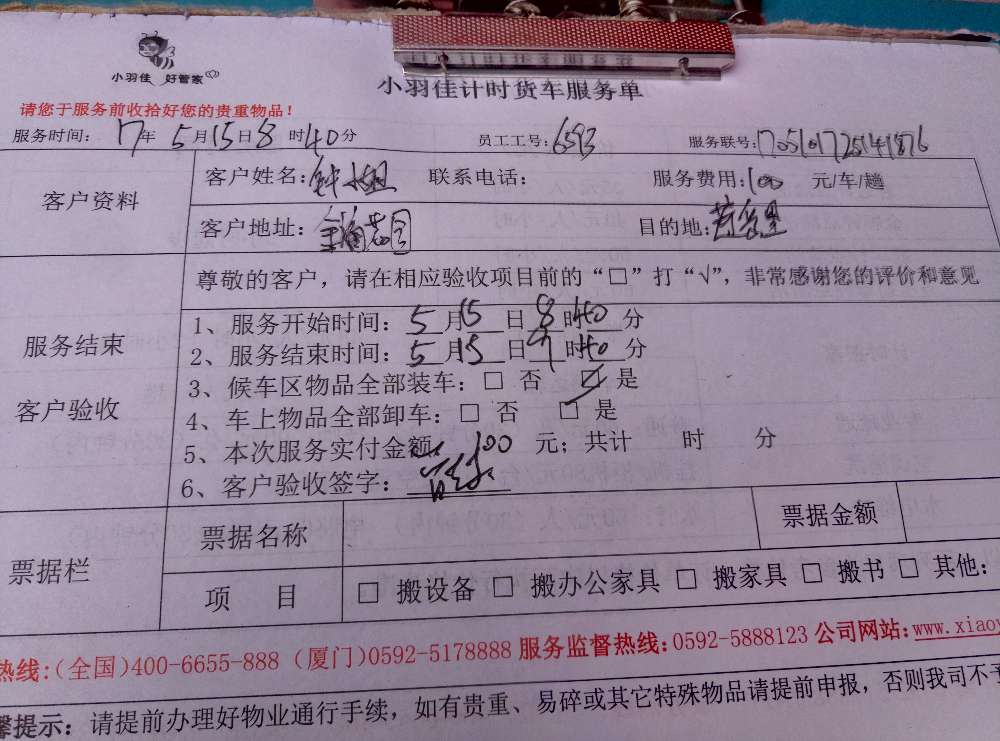 小羽佳 好管家
小羽佳计时货车服务单
请您于服务前收拾好您的贵重物品!
服务时间: 17年 5月15日8时40分 员工工号: 6593 服务联号: 1705101725141876
客户资料
客户姓名: 钟小姐 联系电话: 服务费用: 100 元/车/趟
客户地址: 金尚花园 目的地:
尊敬的客户,请在相应验收项目前的“□”打“√”,非常感谢您的评价和意见
服务结束
客户验收
1、服务开始时间: 5月15日8时40分
2、服务结束时间: 5月15日9时40分
3、候车区物品全部装车:□ 否 ☑ 是
4、车上物品全部卸车:□ 否 □ 是
5、本次服务实付金额: 100 元;共计 时 分
6、客户验收签字:
票据栏
票据名称 票据金额
项 目 □ 搬设备 □ 搬办公家具 □ 搬家具 □ 搬书 □ 其他:
热线:(全国)400-6655-888 (厦门)0592-5178888 服务监督热线:0592-5888123 公司网站:www.xiaoy
馨提示: 请提前办理好物业通行手续,如有贵重、易碎或其它特殊物品请提前申报,否则我司不予